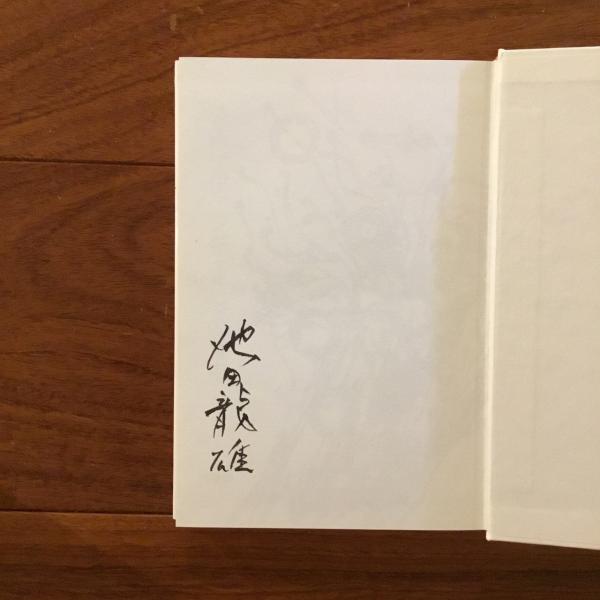 池田龍雄